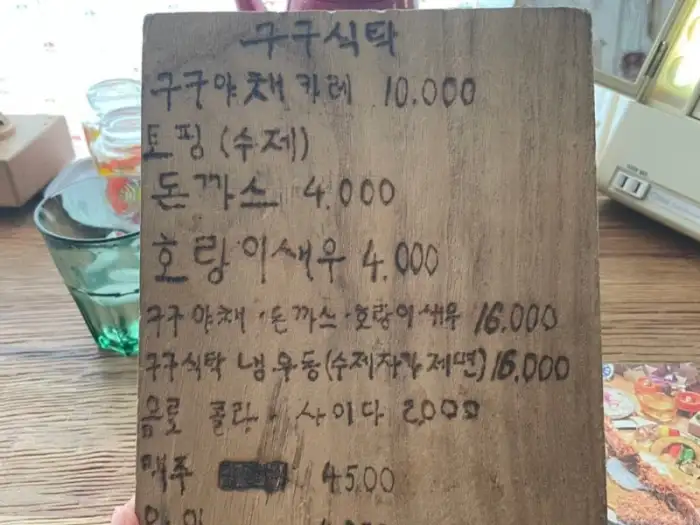 구구식탁
구구야채 카레 10.000
토핑 (수제)
돈까스 4.000
호랑이새우 4.000
구구야채·돈까스·호랑이새우 16.000
구구식탁 냄우동(수제자가제면) 16.000
음료 콜라·사이다 2,000
맥주 4500